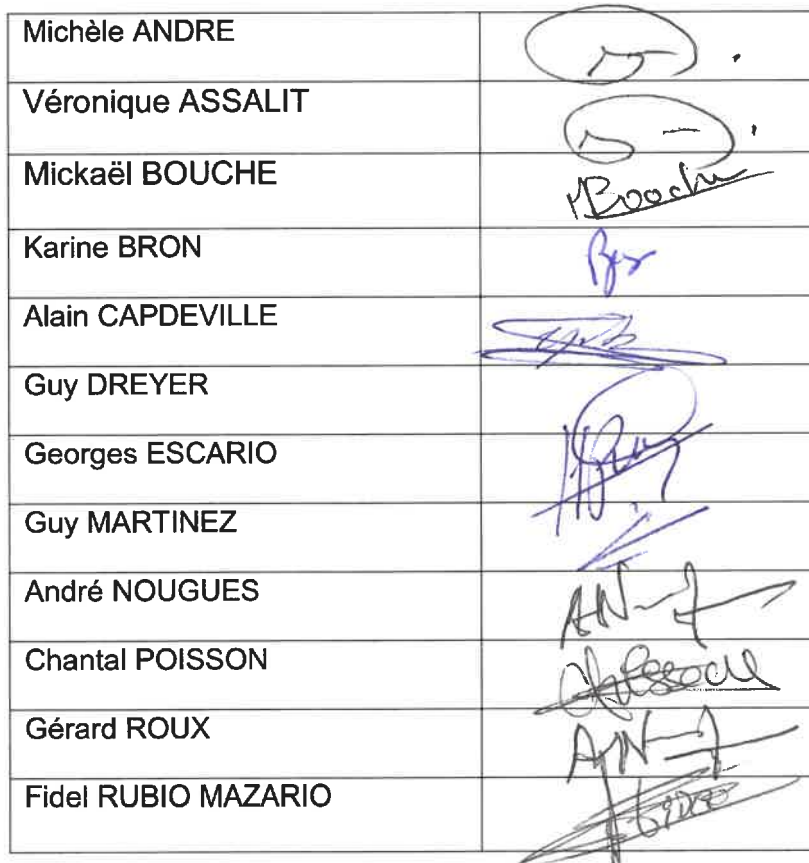 Michèle ANDRE
Véronique ASSALIT
Mickaël BOUCHE
Karine BRON
Alain CAPDEVILLE
Guy DREYER
Georges ESCARIO
Guy MARTINEZ
André NOUGUES
AN
Chantal POISSON
Gérard ROUX
AN
Fidel RUBIO MAZARIO